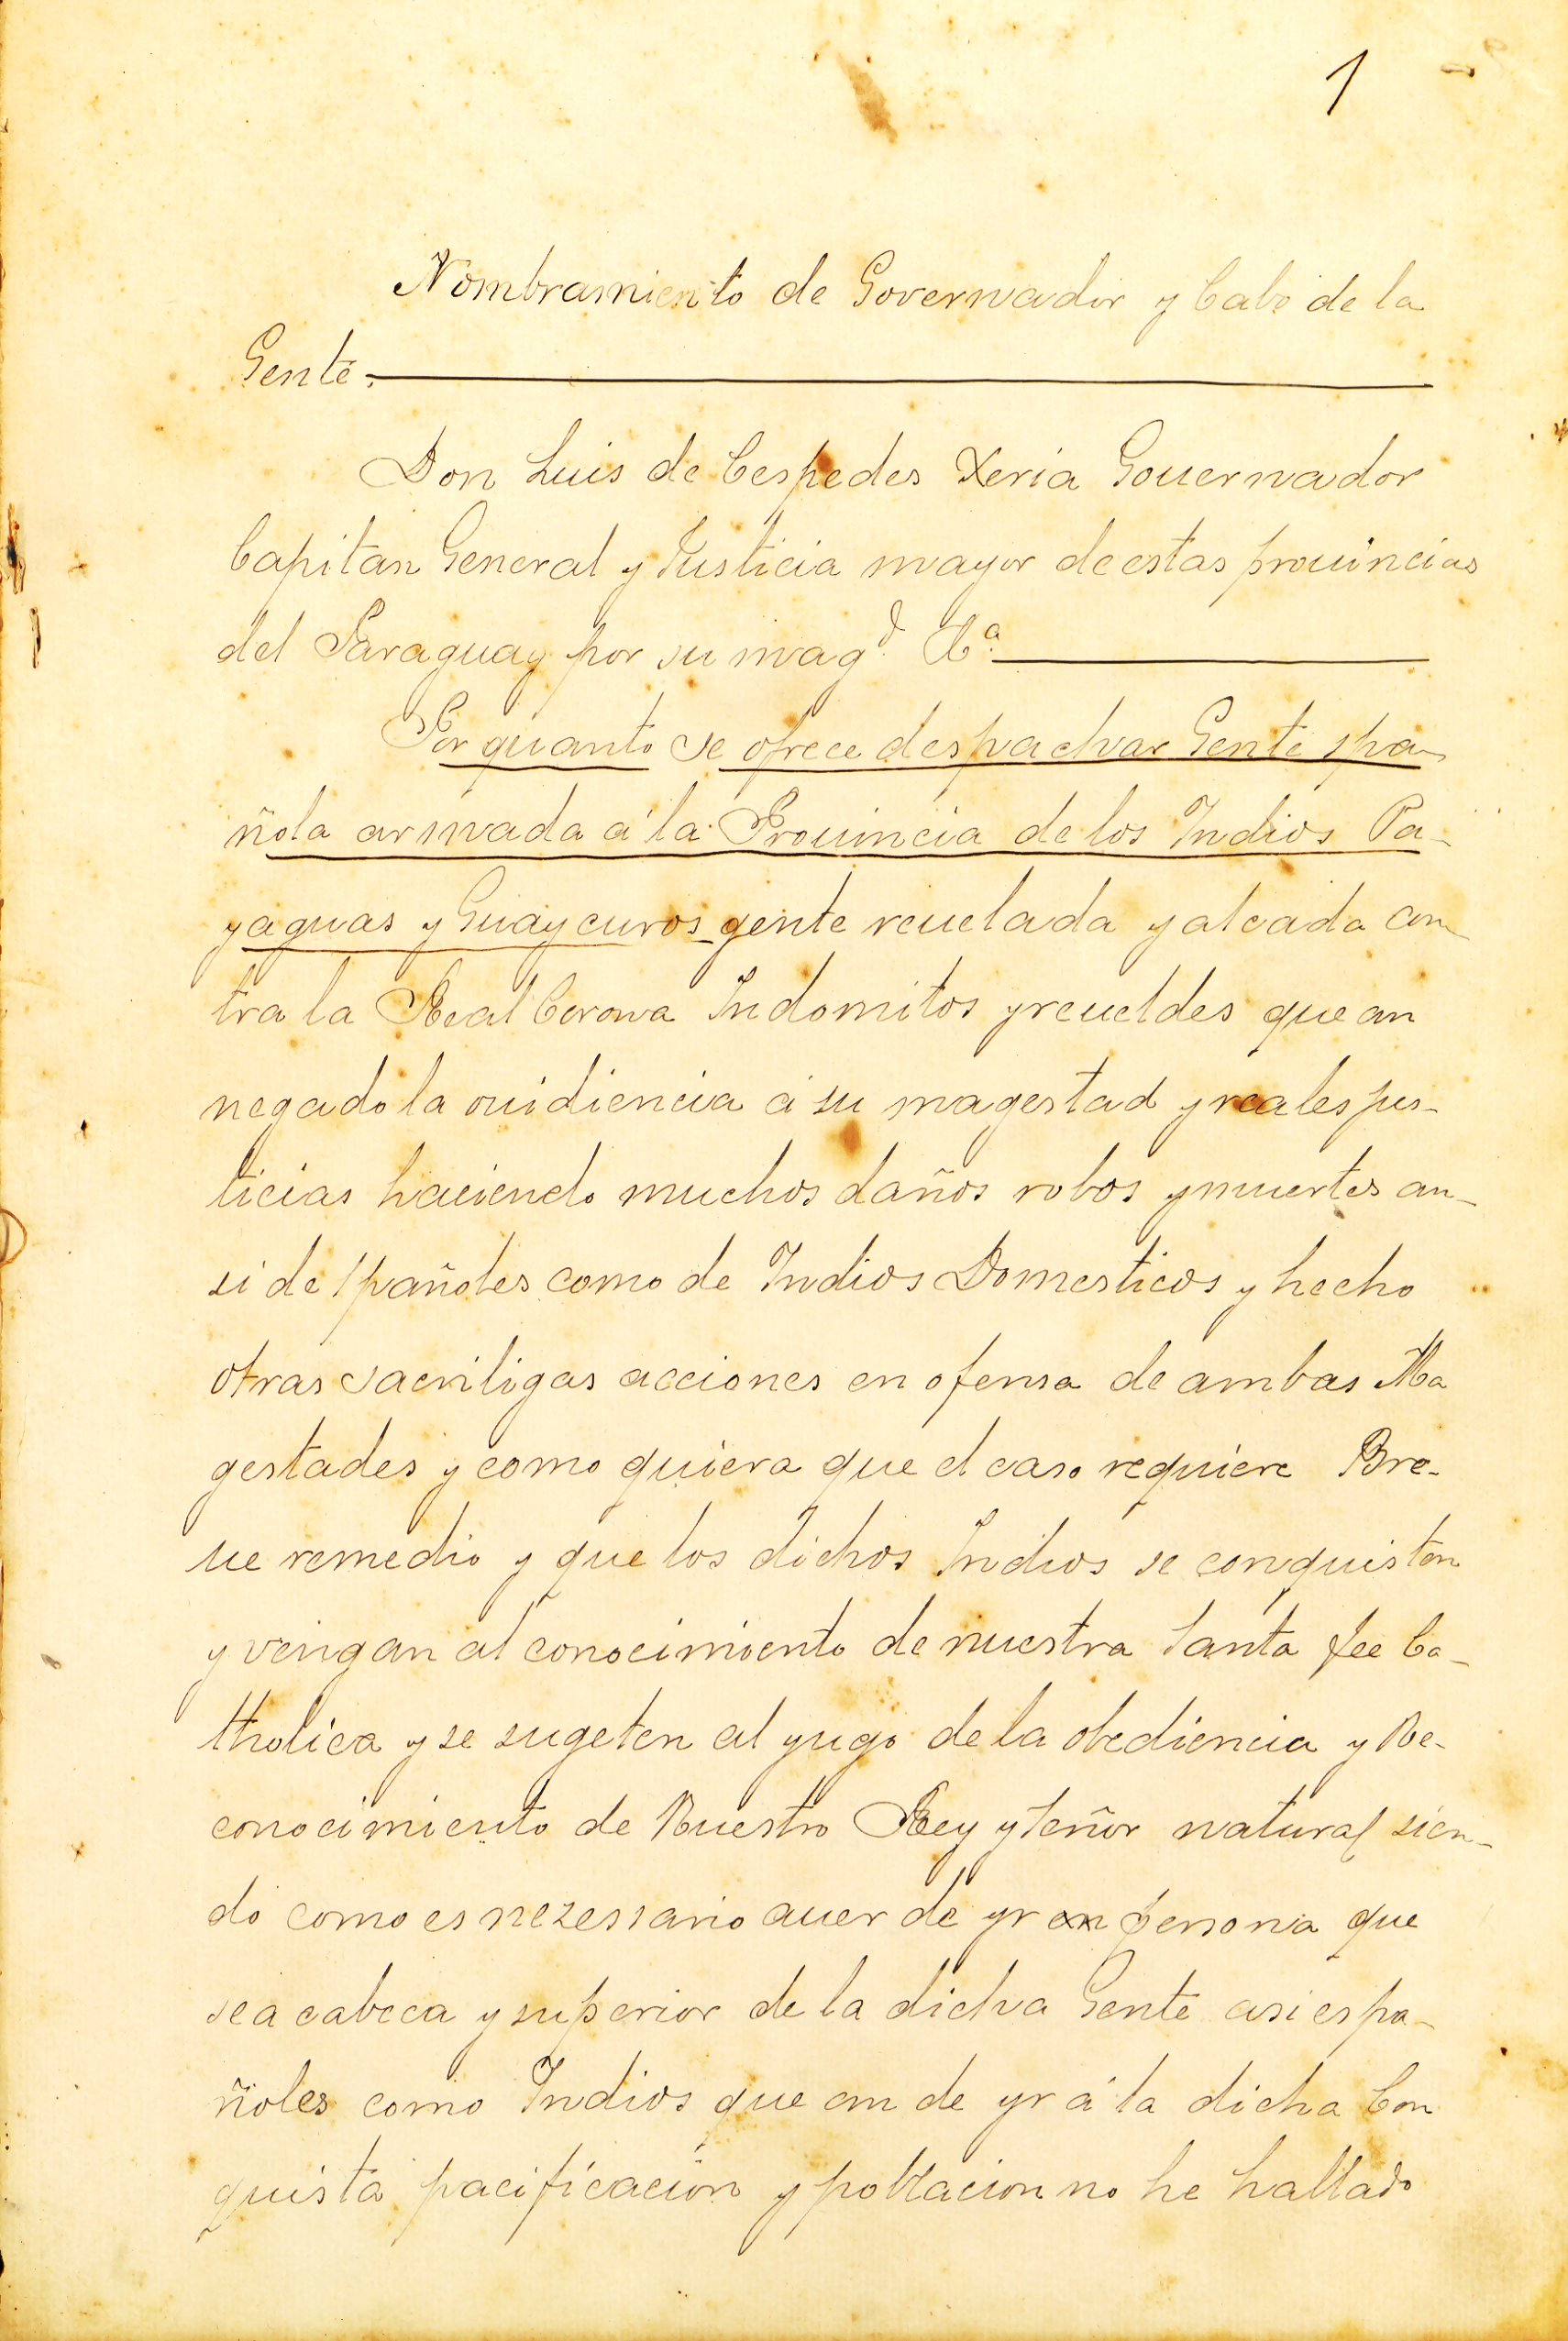 1
Nombramiento de Governador y Cabo de la
Gente.
Don Luis de Cespedes Xeria Gouernador
Capitan General y Justicia mayor de estas prouincias
del Paraguay por su mag.d &.a
Por quanto se ofrece despachar Gente spa-
ñola armada á la Prouincia de los Indios Pa-
yaguas y Guaycuros gente reuelada y alcada con
tra la Real Corona Indomitos y reueldes que an
negado la ouidiencia á su magestad y reales jus-
ticias haciendo muchos daños robos y muertes an-
si de Spañoles como de Indios Domesticos y hecho
otras sacriligas acciones en ofensa de ambas Ma
gestades y como quiera que el caso requiere Bre-
ue remedio y que los dichos Indios se conquisten
y vengan al conocimiento de nuestra Santa fee Ca-
tholica y se sugeten al yugo de la obediencia y Re-
conocimiento de Nuestro Rey y Señor natural sien-
do como es nezessario auer de yr en persona que
sea cabeca y superior de la dicha Gente asi espa-
ñoles como Indios que an de yr á la dicha Con
quista pacificacion y poblacion no he hallado